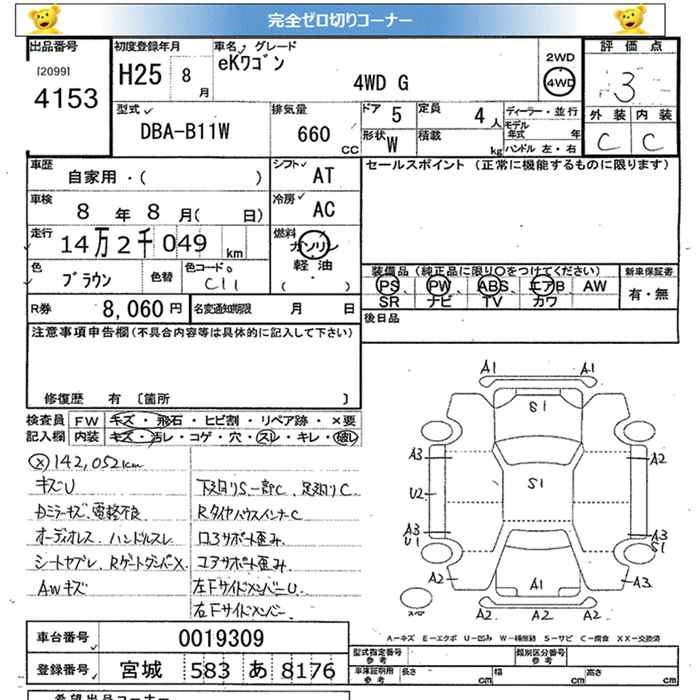 完全ゼロ切りコーナー
出品番号
[2099]
4153
初度登録年月
H25 8月
車名 グレード
eKワゴン
4WD G
2WD
4WD
評価点
3
外装 内装
C C
型式
DBA-B11W
排気量
660 CC
ドア 5
定員 4人
形状 W
積載 kg
ディーラー・並行
モデル年式 年
ハンドル 左・右
車歴
自家用・( )
シフト AT
セールスポイント (正常に機能するものに限ります)
車検
8年8月( 日)
冷房 AC
走行
14万2千049 km
燃料
ガソリン
軽油
( )
色
ブラウン
色替
色コードo
C11
装備品(純正品に限り○をつけてください)
PS、PW、ABS、エアB AW
SR ナビ TV カワ
新車保証書
有・無
R券 8,060円
名変通知期限 月 日
後日品
注意事項申告欄(不具合内容等は具体的に記入して下さい)
修復歴 有 〔箇所 〕
検査員記入欄
FW キズ・飛石・ヒビ割・リペア跡・×要
内装 キズ・汚レ・コゲ・穴・スレ・キレ・破レ
ⓧ142,052km
キズU
Dミラーキズ、電格不良
オーディオレス、ハンドルスレ
シートヤブレ、RゲートダンパーX、
AWキズ
下廻りS、一部C、足廻りC
RタイヤハウスインナーC
ロアサポート歪み
コアサポート歪み
左FサイドメンバーU、
左Fサイドメンバー
A1 A1
S1
A3 A2
S1
U2
A3 A3
U1 S1
A2 A1 A3
スペア
A2 A2 A2
A－キズ E－エクボ U－凹み W－補修跡 S－サビ C－腐食 XX－交換済
車台番号 0019309
登録番号 宮城 583 あ 8176
型式指定番号 参考
類別区分番号 参考
車庫証明用 参考
長さ cm 幅 cm 高さ cm
希望出品コーナー